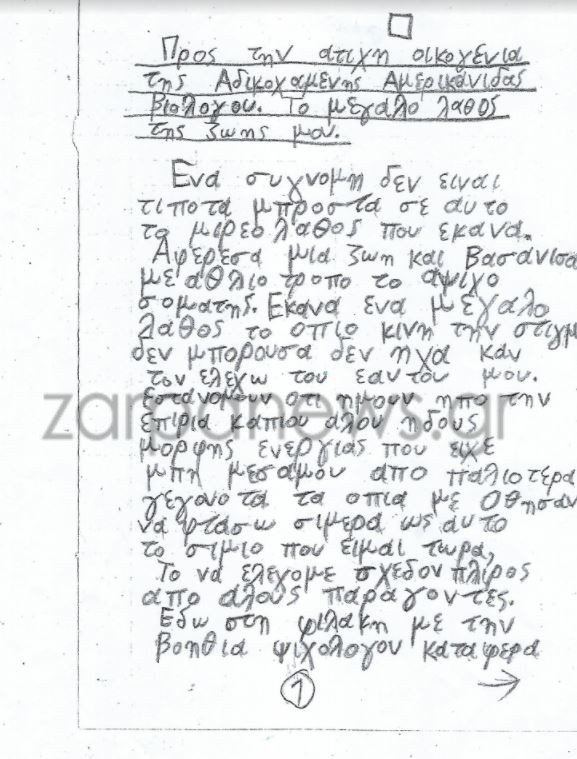 Προς την ατιχη οικογενια
της Αδικοχαμενης Αμερικανιδας
βιολογου. Το μεγαλο λαθος
της ζωης μου.
Ενα συχνομη δεν ειναι
τιποτα μπροστα σε αυτο
το μιρεο λαθος που εκανα.
Αφερεσα μια ζωη και βασανισα
με αθλιο τροπο το αψιχο
σοματης. Εκανα ενα μεγαλο
λαθος το οπιο κινη την στιγμ
δεν μπορουσα δεν ηχα καν
τον ελεχω του εαυτου μου.
εστανομουν οτι ημουν ηπο την
επιρια καπιου αλου ηδους
μορφης ενεργιας που ειχε
μπη μεσαμου απο παλιοτερα
γεγονοτα τα οπια με οθησαν
να φτασω σιμερα ως αυτο
το σιμιο που ειμαι τωρα,
Το να ελεχομε σχεδον πλιρος
απο αλους παραγοντες.
Εδω στη φιλακη με την
βοηθια ψιχολογου καταφερα
1
zarpanews.gr